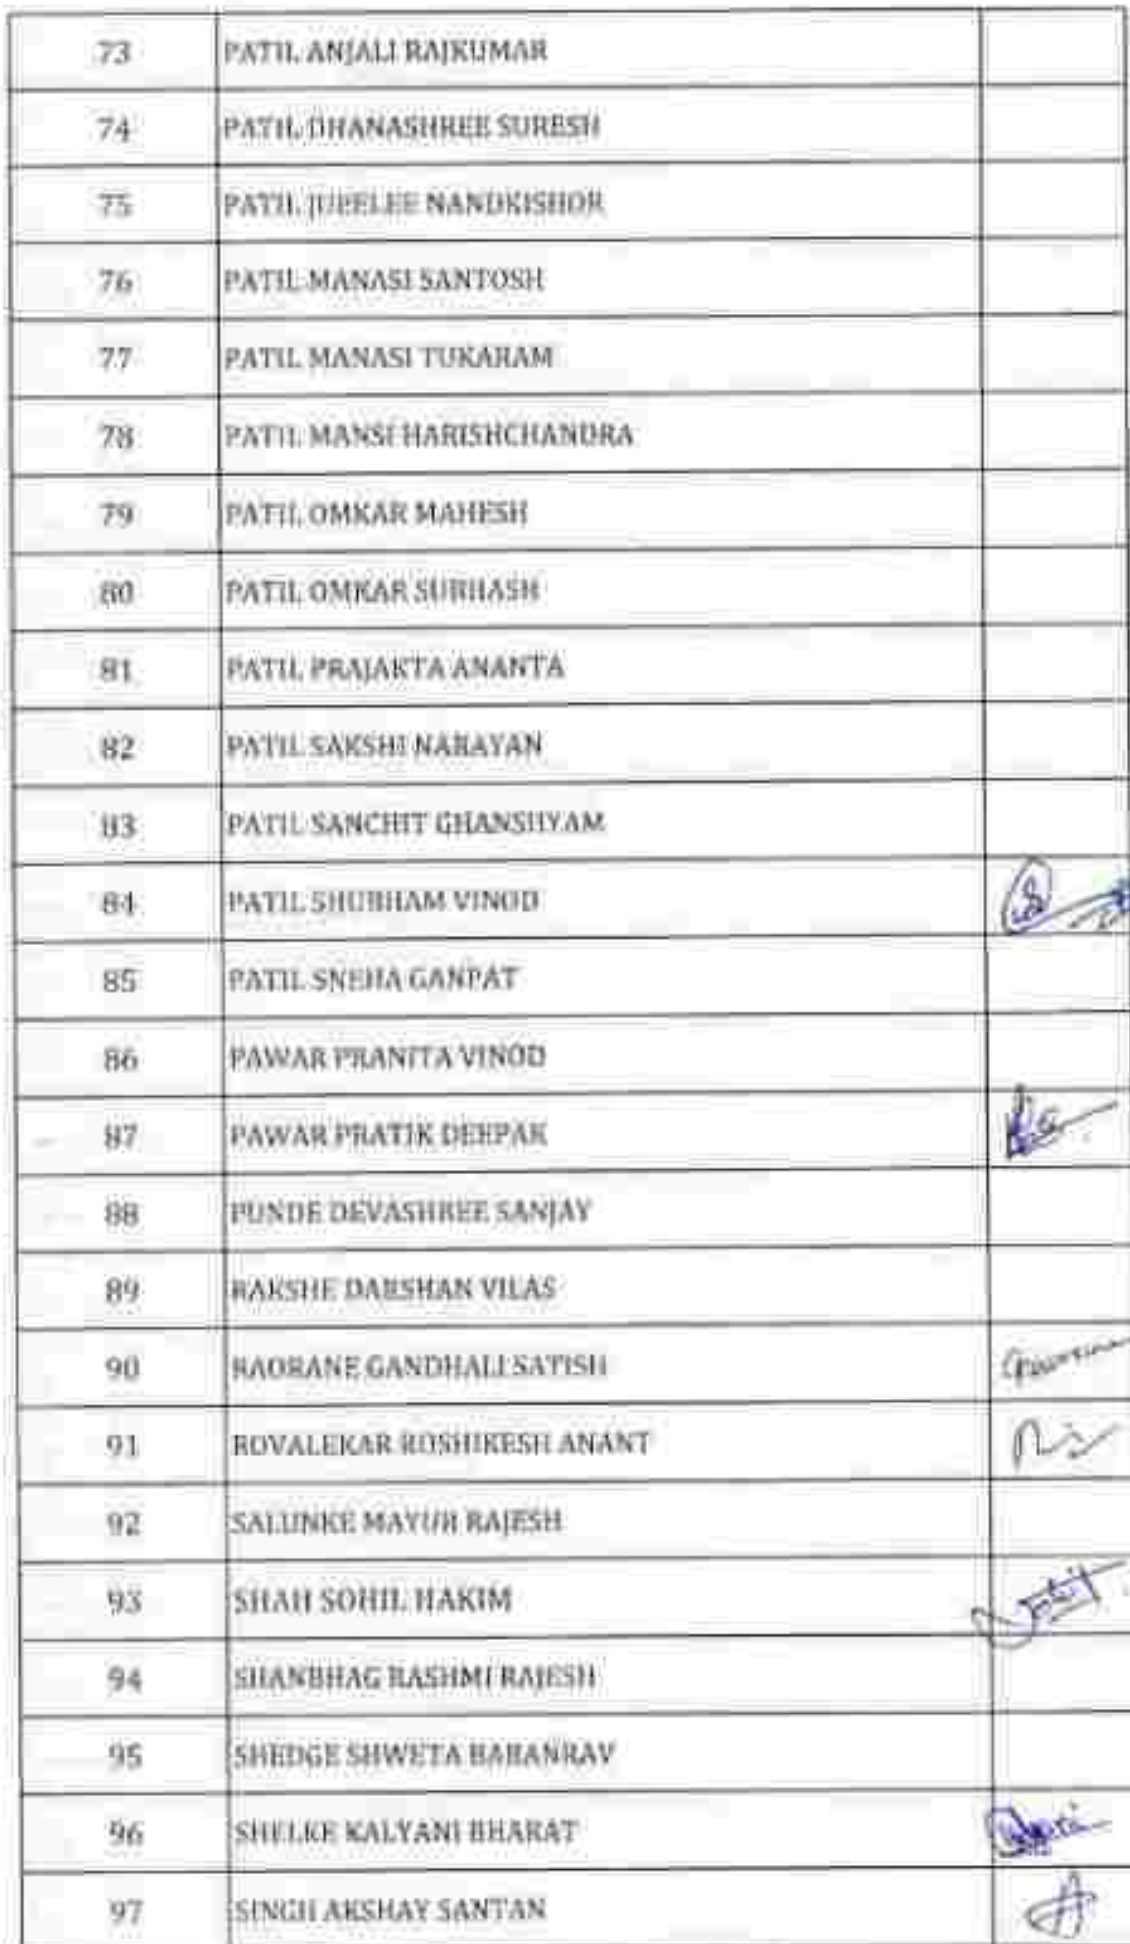 73 PATIL ANJALI RAJKUMAR
74 PATIL DHANASHREE SURESH
75 PATIL JUEELEE NANDKISHOR
76 PATIL MANASI SANTOSH
77 PATIL MANASI TUKARAM
78 PATIL MANSI HARISHCHANDRA
79 PATIL OMKAR MAHESH
80 PATIL OMKAR SUBHASH
81 PATIL PRAJAKTA ANANTA
82 PATIL SAKSHI NARAYAN
83 PATIL SANCHIT GHANSHYAM
84 PATIL SHUBHAM VINOD
85 PATIL SNEHA GANPAT
86 PAWAR PRANITA VINOD
87 PAWAR PRATIK DEEPAK
88 PUNDE DEVASHREE SANJAY
89 RAKSHE DARSHAN VILAS
90 RAORANE GANDHALI SATISH
91 ROVALEKAR ROSHIKESH ANANT
92 SALUNKE MAYUR RAJESH
93 SHAH SOHIL HAKIM
94 SHANBHAG RASHMI RAJESH
95 SHEDGE SHWETA BABANRAV
96 SHELKE KALYANI BHARAT
97 SINGH AKSHAY SANTAN